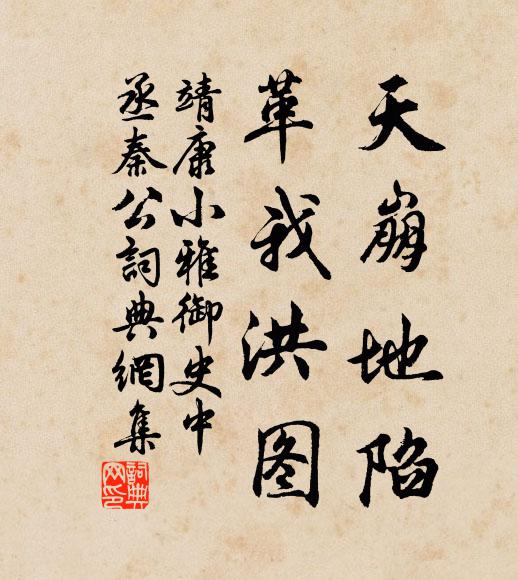 天崩地陷
革我洪图
靖康小雅御史中
丞秦公詞典網集
詞典网印